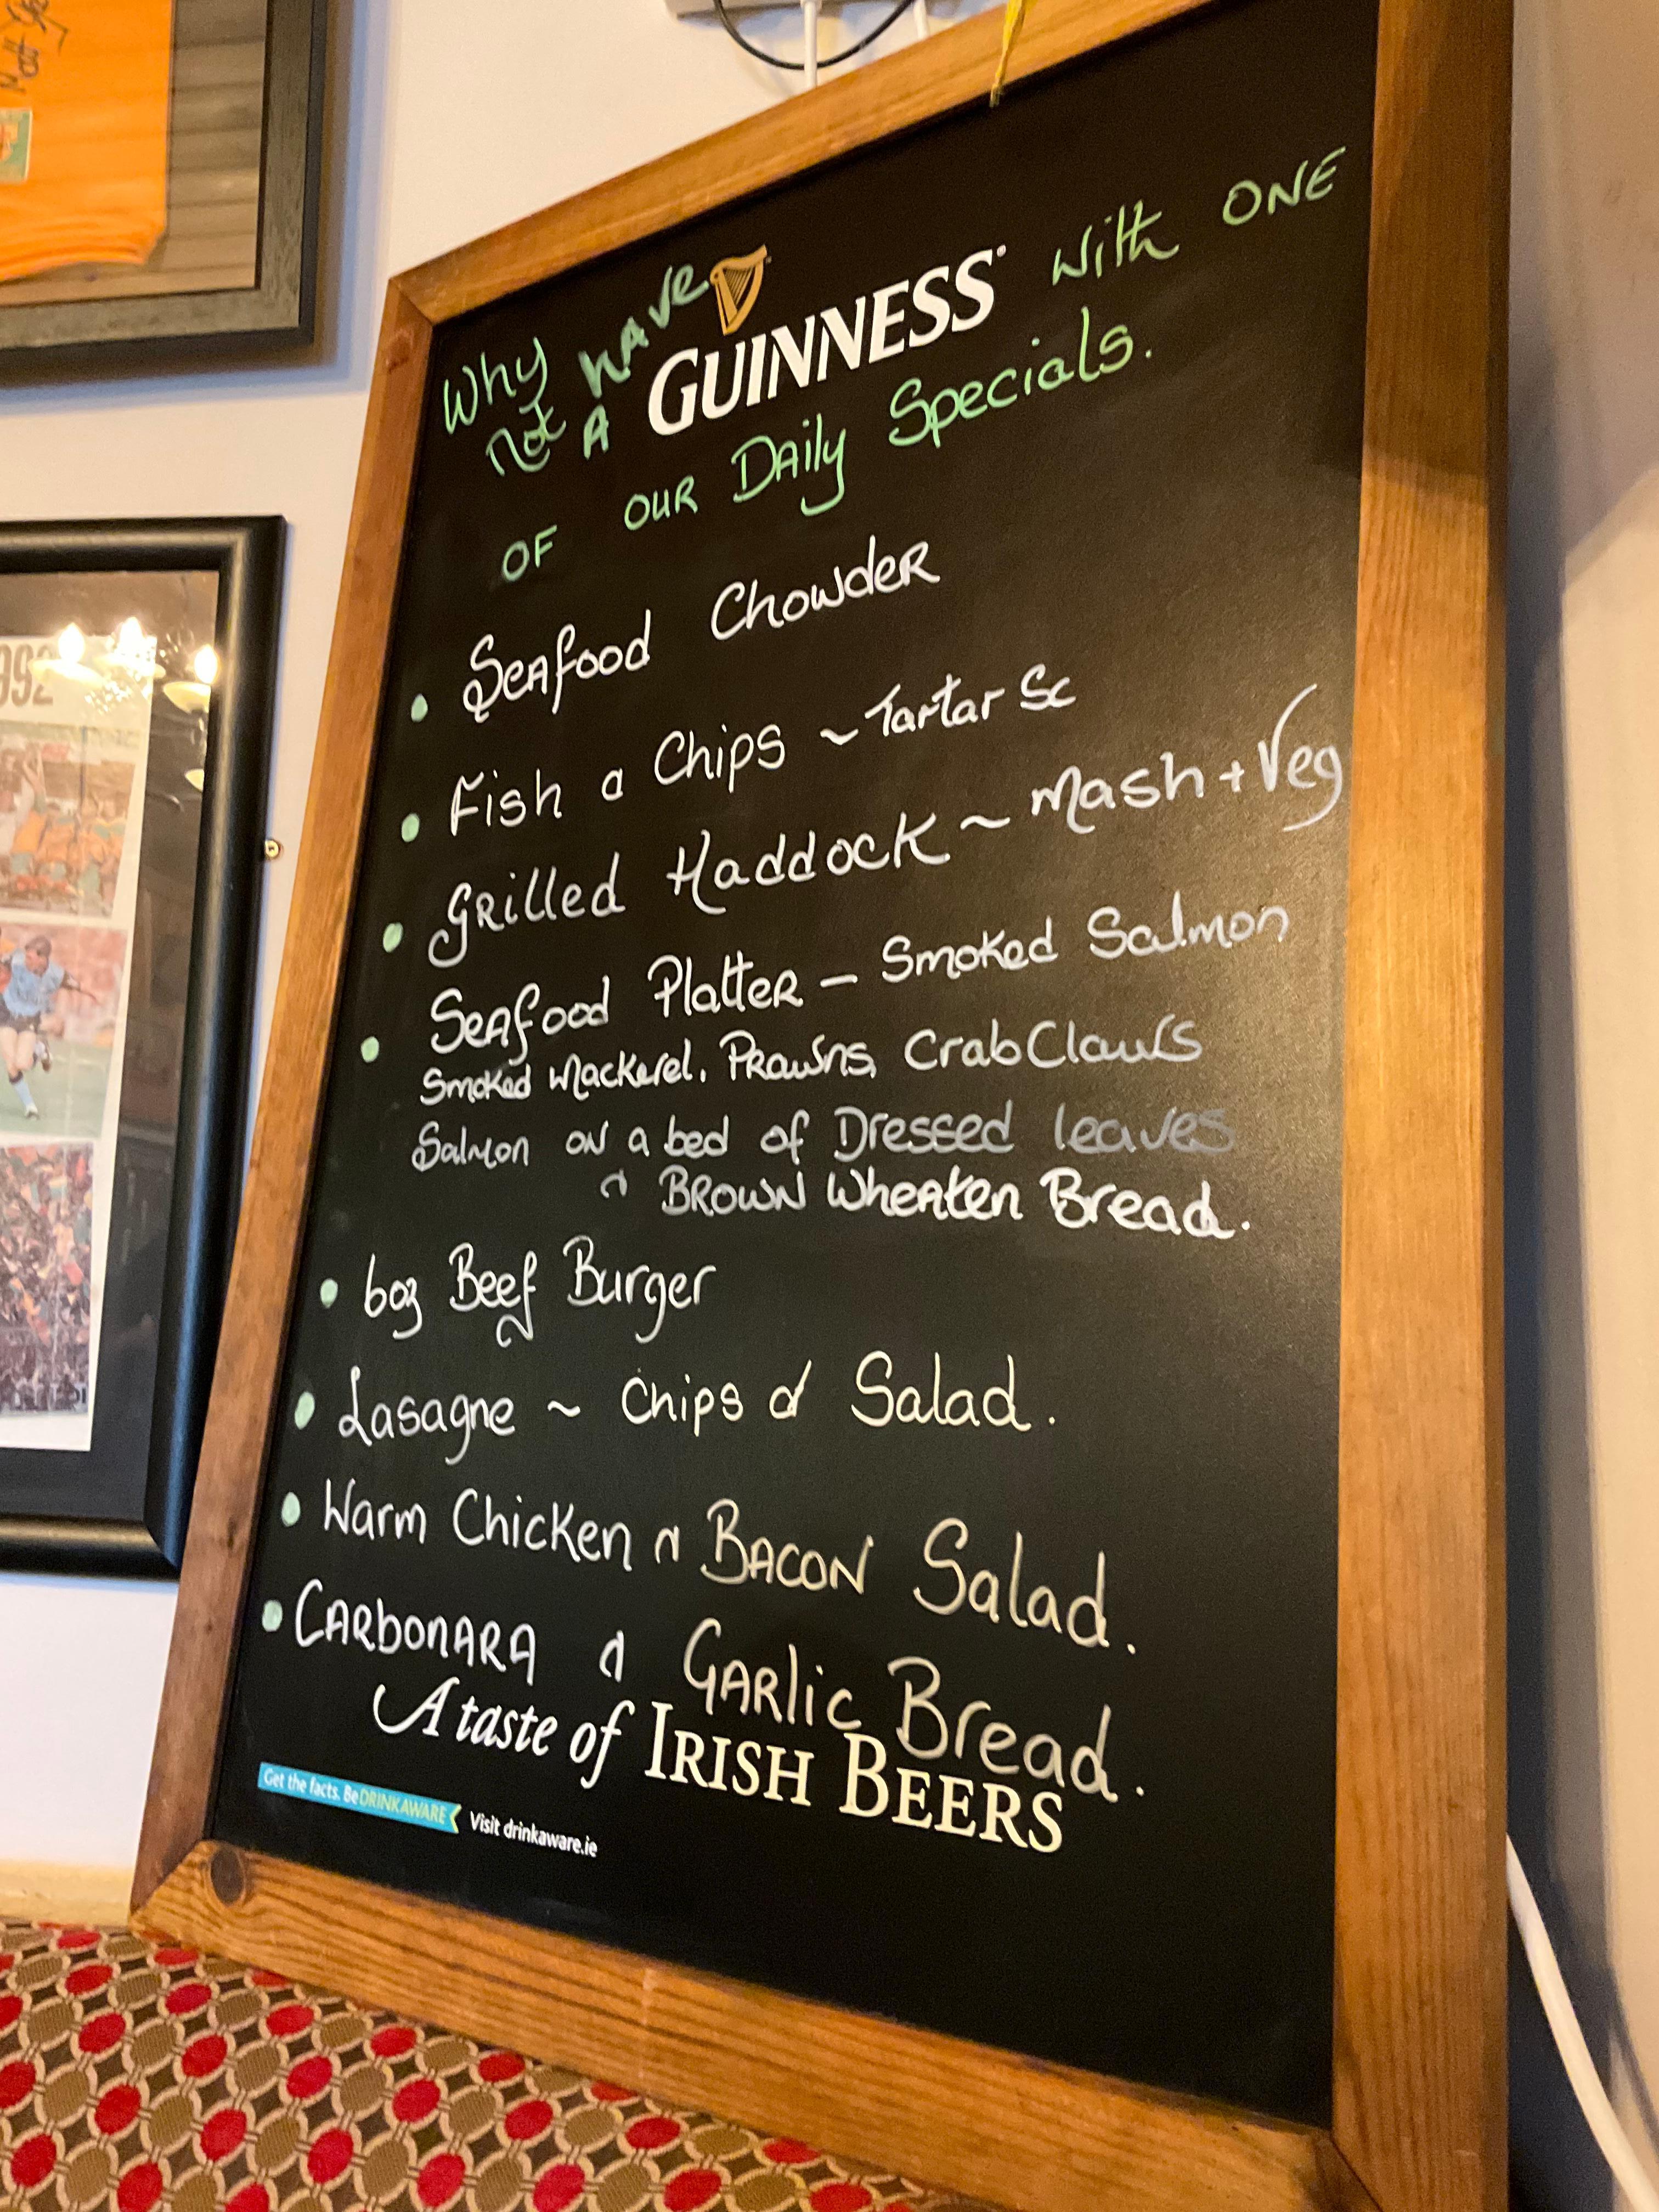 992
Why not have A GUINNESS with ONE
OF OUR Daily Specials.
• Seafood Chowder
• Fish & Chips ~ Tartar Sc
• Grilled Haddock ~ Mash + Veg
• Seafood Platter – Smoked Salmon
Smoked Mackerel, Prawns, Crab Claws
Salmon on a bed of Dressed leaves
& BROWN Wheaten Bread.
• 6oz Beef Burger
• Lasagne ~ Chips & Salad.
• Warm Chicken & BACON Salad.
• CARbONARA & GARlic Bread.
A taste of IRISH BEERS
Get the facts. Be DRINKAWARE Visit drinkaware.ie